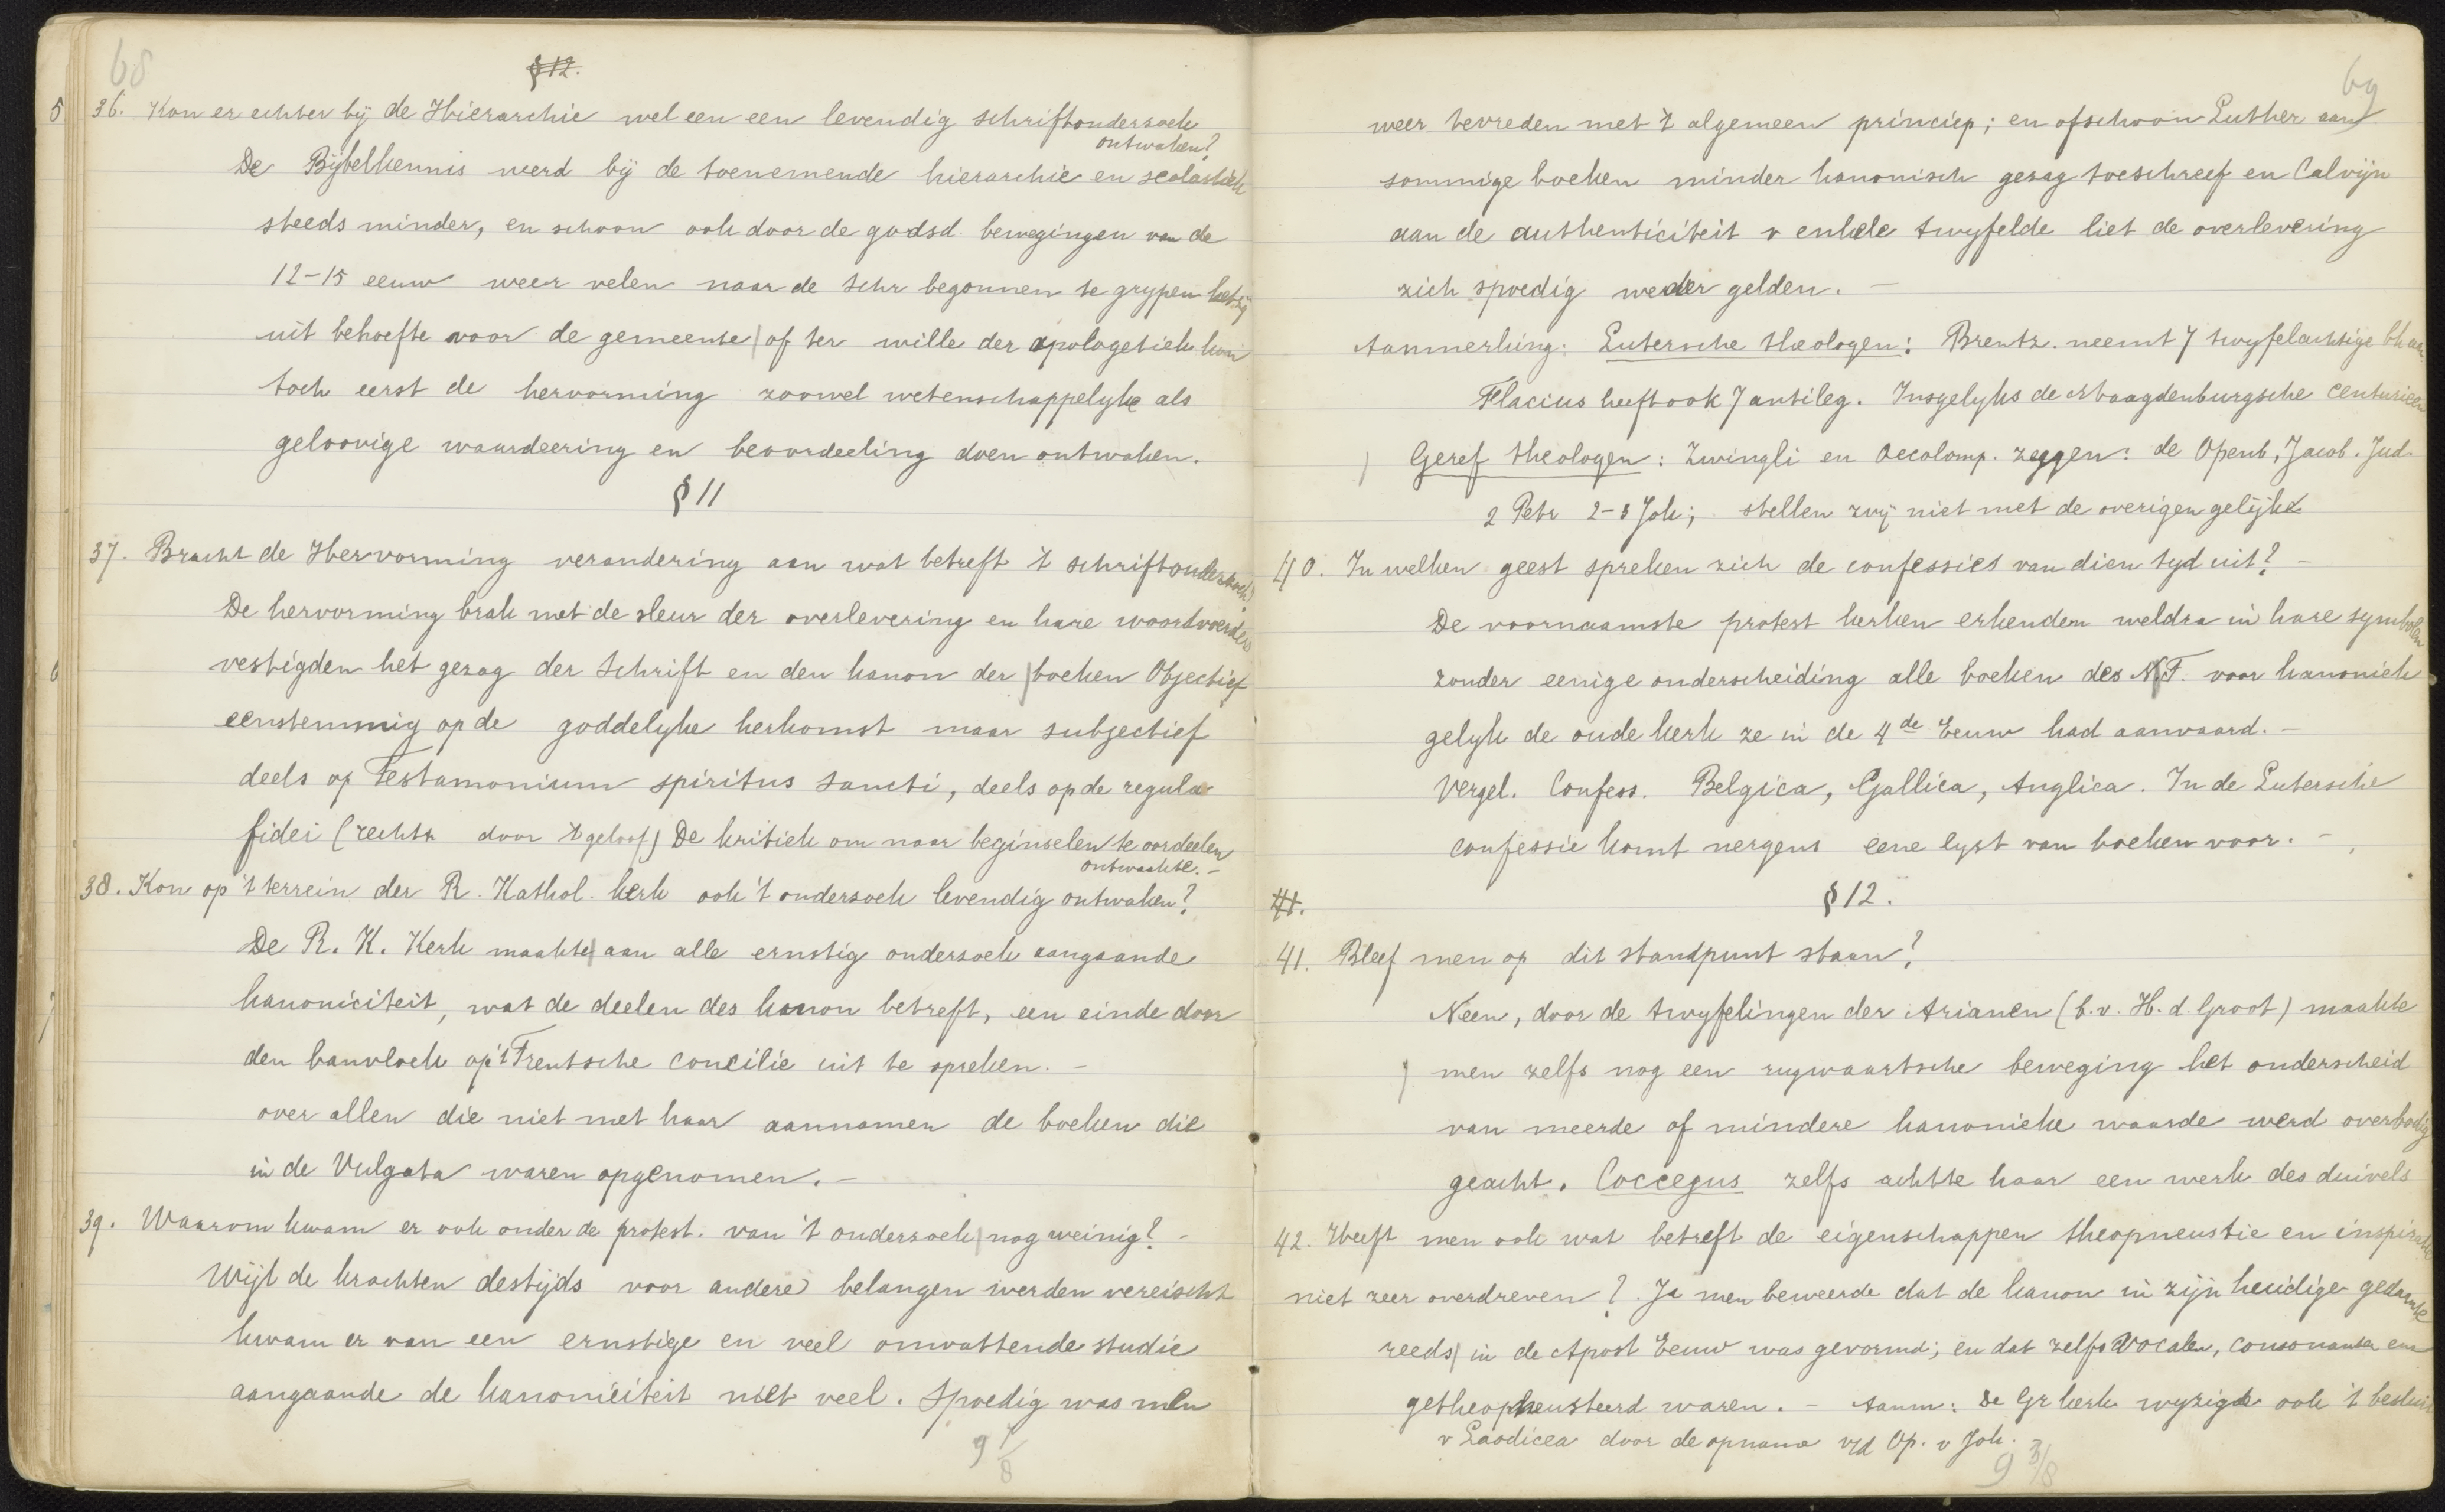 68
§ 12.
5 36. Kon er echter bij de Hierarchie wel een een levendig schriftondersoek
ontwaken?
De Bijbelkennis werd bij de toenemende hierarchie en scolastiek
steeds minder, en schoon ook door de godsd. bewegingen van de
12-15 eeuw weer velen naar de Schr begonnen te grypen hetzij
uit behoefte voor de gemeente of ter wille der apologetiek kon
toch eerst de hervorming zoowel wetenschappelyke als
geloovige waardeering en beoordeeling doen ontwaken.
§ 11
37. Bracht de Hervorming verandering aan wat betreft 't schriftonderzoek?
De hervorming brak met de sleur der overlevering en hare woordvoerders
6 vestigden het gezag der Schrift en den kanon der boeken Objectief
eenstemmig op de goddelyke herkomst maar subjectief
deels op Testamonium spiritus sancti, deels op de regula
fidei (rechts door 't geloof) De kritiek om naar beginselen te oordeelen
ontwaakte. -
38. Kon op 't terrein der R. Kathol. kerk ook 't ondersoek levendig ontwaken?
De R. K. Kerk maakte aan alle ernstig ondersoek aangaande
7 kanoniciteit, wat de deelen des kanon betreft, een einde door
den banvloek op 't Trentsche concilie uit te spreken. -
over allen die niet met haar aannamen de boeken die
in de Vulgata waren opgenomen. -
39. Waarom kwam er ook onder de protest. van 't ondersoek nog weinig? -
Wijl de krachten destijds voor andere belangen werden vereischt
kwam er van een ernstige en veel omvattende studie
aangaande de kanoniciteit niet veel. Spoedig was men
9 1/8
69
weer tevreden met 't algemeen princiep; en ofschoon Luther aan
sommige boeken minder kanonisch gesag toeschreef en Calvijn
aan de authenticiteit v enkele twyfelde liet de overlevering
zich spoedig weder gelden. -
Aanmerking: Lutersche theologen: Brentz. neemt 7 twyfelachtige bk aan
Flacius heeft ook 7 antileg. Insgelyks de Maagdenburgsche Centurieen
Geref theologen: Zwingli en Oecolomp. zeggen: de Openb, Jacob. Jud.
2 Petr 2-3 Joh; stellen zwij niet met de overigen gelijke
40. In welken geest spreken zich de confessies van dien tyd uit? -
De voornaamste protest kerken erkenden weldra in hare symbolen
zonder eenige onderscheiding alle boeken des N.T. voor kanoniek
gelyk de oude kerk ze in de 4de Eeuw had aanvaard. -
Vergel. Confess. Belgica, Gallica, Anglica. In de Lutersche
confessie komt nergens eene lyst van boeken voor. -
§ 12.
41.
41. Bleef men op dit standpunt staan?
Neen, door de twyfelingen der Arianen (b.v. H. d. Groot) maakte
men zelfs nog een rugwaartsche beweging het onderscheid
van meerde of mindere kanonieke waarde werd overbodig
geacht. Coccegus zelfs achtte haar een werk des duivels
42. Heeft men ook wat betreft de eigenschappen theopneustie en inspiratie
niet zeer overdreven? Ja men beweerde dat de kanon in zijn heidige gedaante
reeds in de Apost Eeuw was gevormd; en dat zelfs vocalen, consonanten enz
getheopneusteerd waren. - Aanm: De Gr kerk wyzigde ook 't besluit
v Laodicea door de opname v/d Op. v Joh.
9 3/8